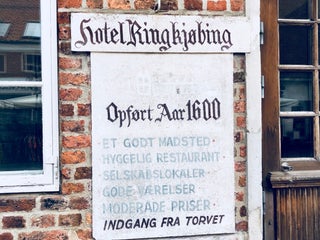 Hotel Ringkjøbing
Opført Aar 1600
ET GODT MADSTED ·
HYGGELIG RESTAURANT ·
SELSKABSLOKALER ·
GODE VÆRELSER ·
MODERADE PRISER ·
INDGANG FRA TORVET